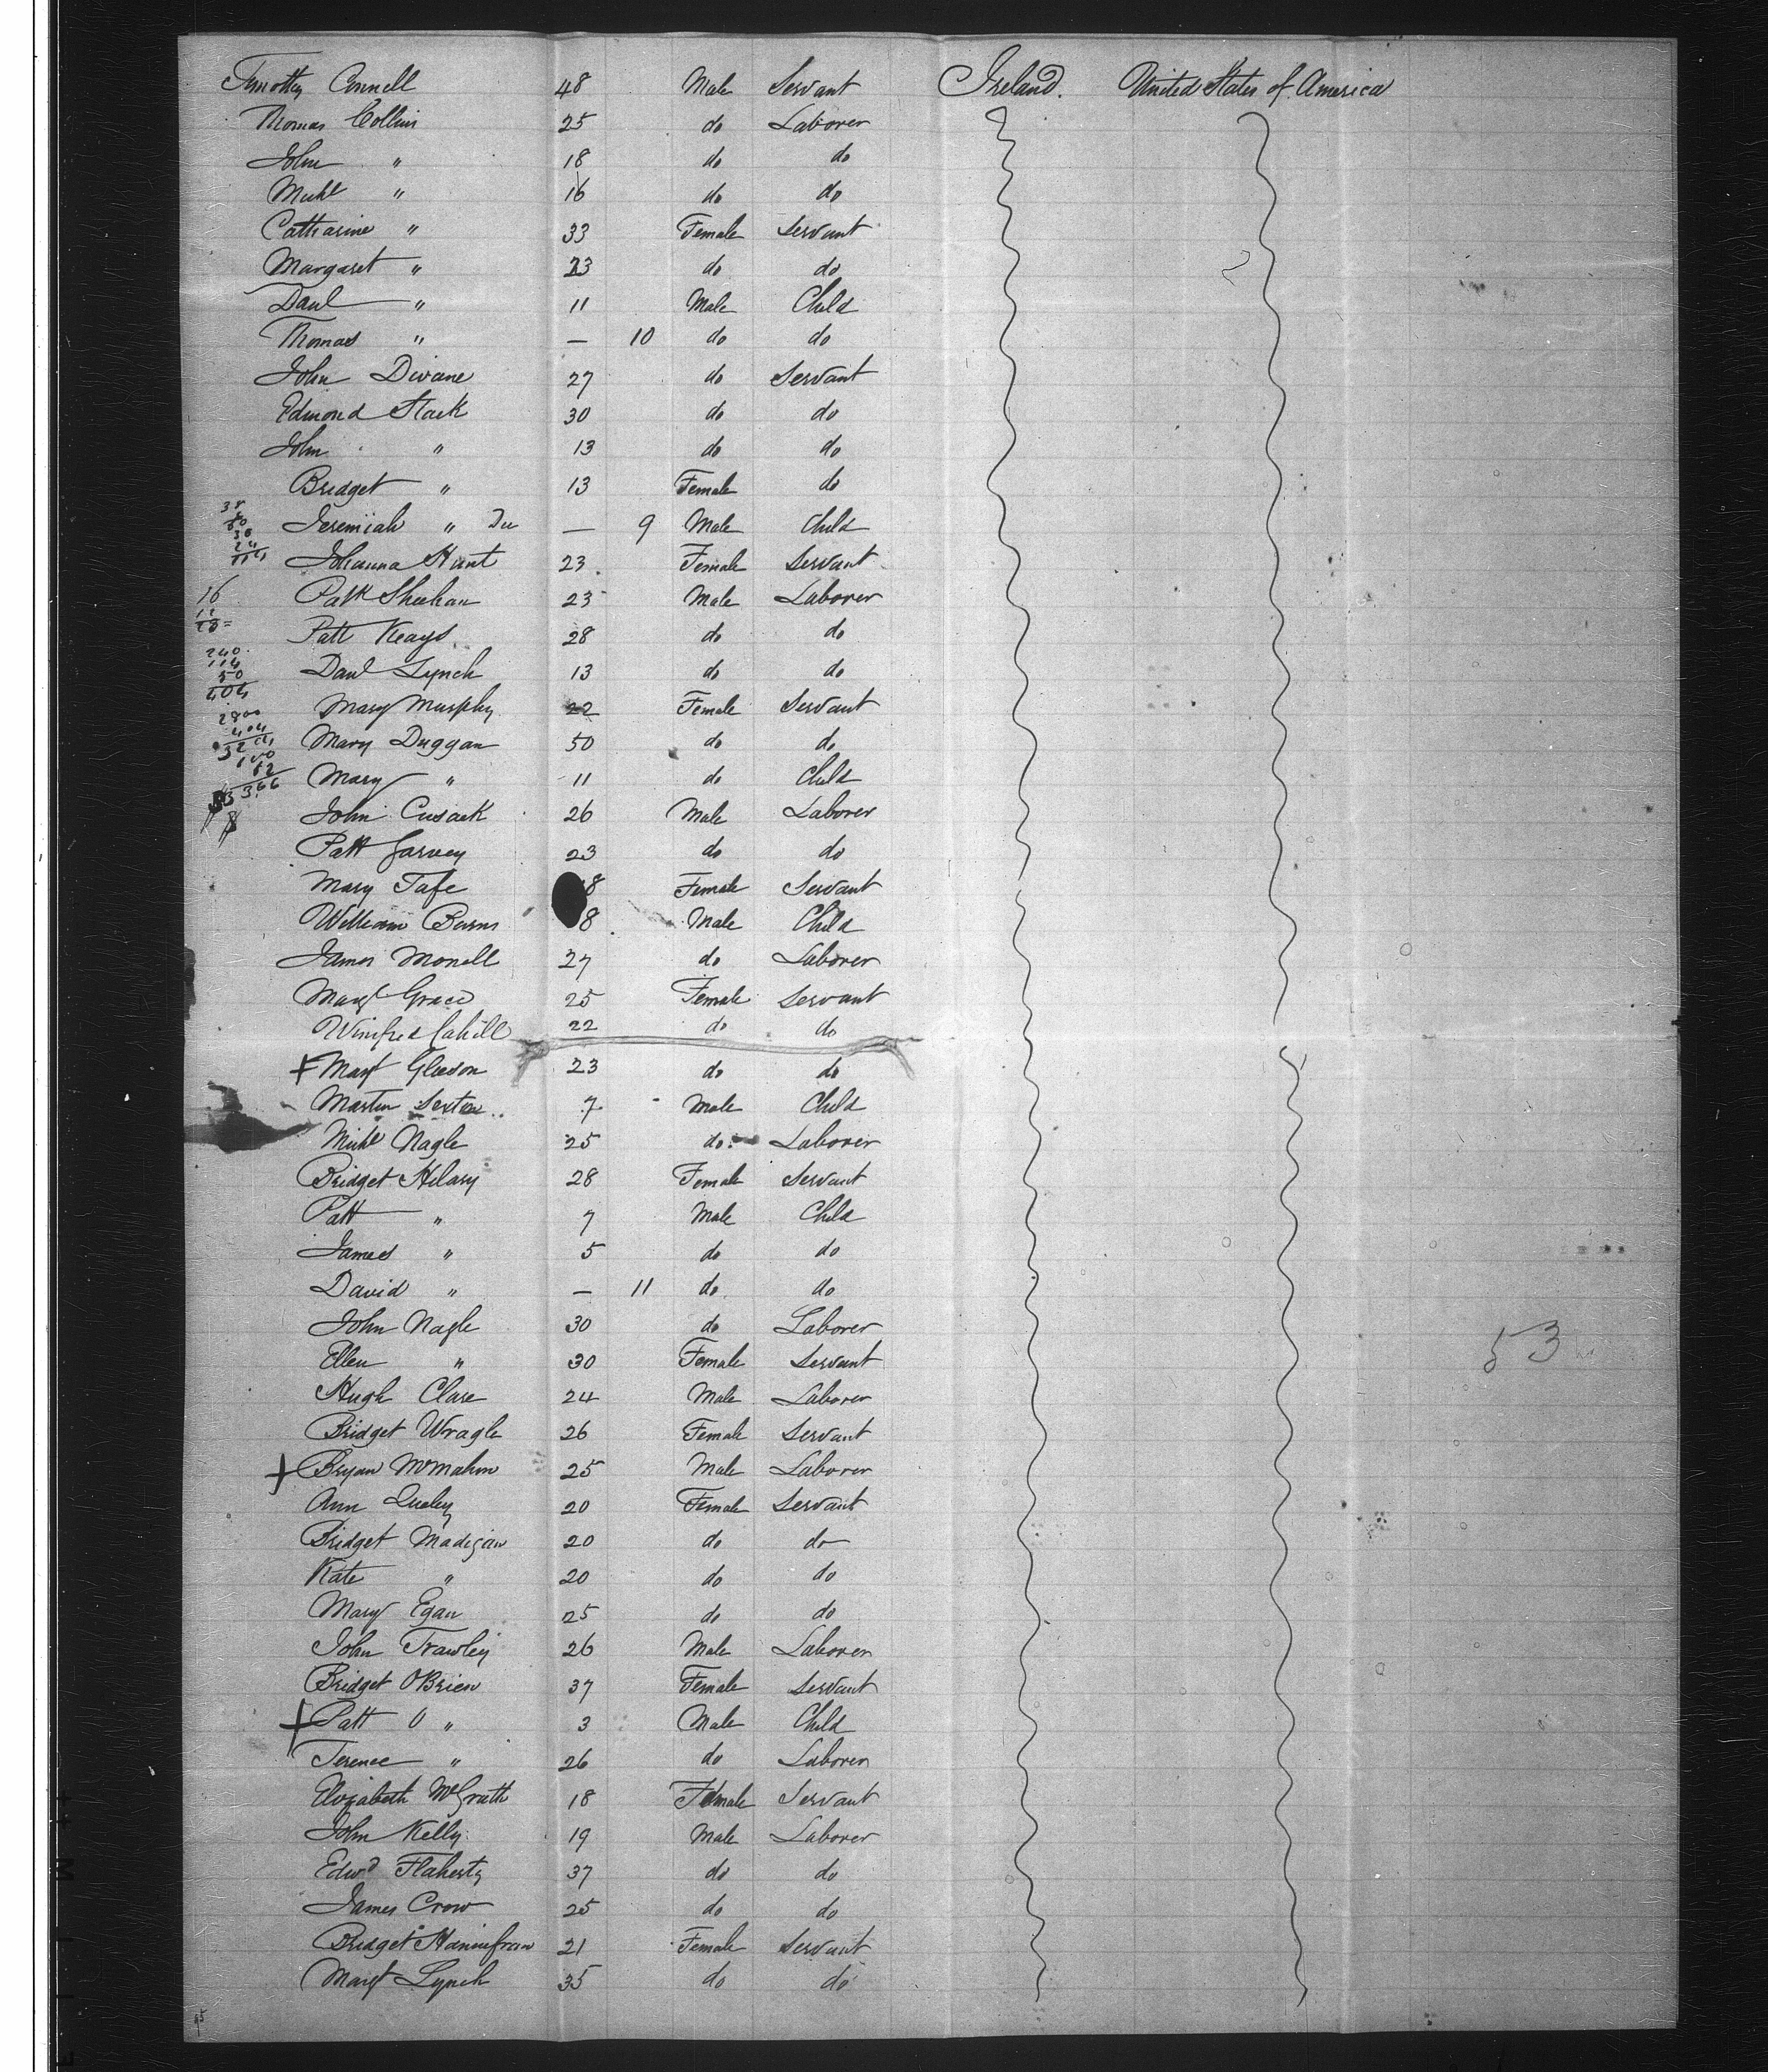 Timothy Connell 48 Male Servant Ireland. United States of America
Thomas Collins 25 do Laborer
John " 18 do do
Michl " 16 do do
Catharine " 33 Female Servant
Margaret " 23 do do
Danl " 11 Male Child
Thomas " — 10 do do
John Divane 27 do Servant
Edmond Stack 30 do do
John " 13 do do
Bridget " 13 Female do
Jeremiah " — 9 Male Child
Johanna Hunt 23 Female Servant
16 Patk Sheehan 23 Male Laborer
Patt Keays 28 do do
240
114
50
404
Danl Lynch 13 do do
Mary Murphy 22 Female Servant
Mary Duggan 50 do do
Mary " 11 do Child
John Cusack 26 Male Laborer
Patt Garvey 23 do do
Mary Tafe 8 Female Servant
William Burns 8 Male Child
James Monell 27 do Laborer
Margt Grace 25 Female Servant
Winifred Cahill 22 do do
+ Margt Gleeson 23 do do
Martin Sexton 7 Male Child
Michl Nagle 25 do Laborer
Bridget Hilary 28 Female Servant
Patt " 7 Male Child
James " 5 do do
David " — 11 do do
John Nagle 30 do Laborer
Ellen " 30 Female Servant
53
Hugh Clare 24 Male Laborer
Bridget Wragle 26 Female Servant
+ Bryan McMahon 25 Male Laborer
Ann Queley 20 Female Servant
Bridget Madigan 20 do do
Kate " 20 do do
Mary Egan 25 do do
John Frawley 26 Male Laborer
Bridget OBrien 37 Female Servant
+ Patt O " 3 Male Child
Terence " 26 do Laborer
Elizabeth McGrath 18 Female Servant
John Kelly 19 Male Laborer
Edwd Flaherty 37 do do
James Crow 25 do do
Bridget Hannifran 21 Female Servant
Margt Lynch 35 do do